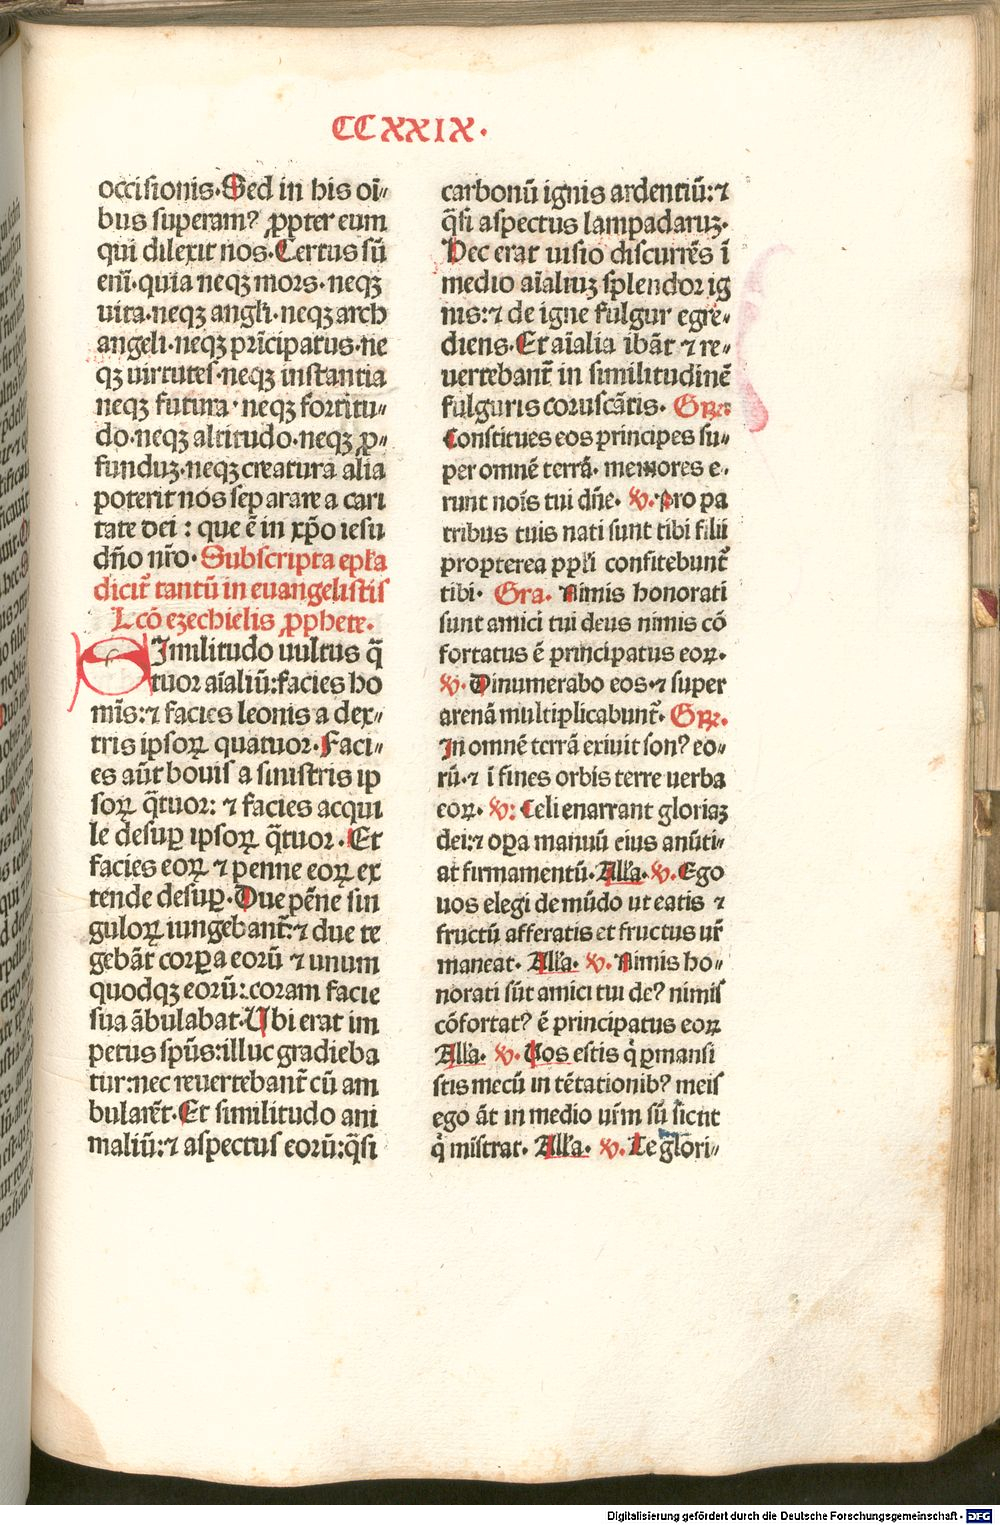 CCXXIX.
occisionis. Sed in his oī⸗
bus superam? ꝓpter eum
qui dilexit nos. Certus sū
eni. quia neqꝫ mors. neqꝫ
uita. neqꝫ angli. neqꝫ arch
angeli. neqꝫ prīcipatus. ne
qꝫ uirtutes. neqꝫ instantia
neqꝫ futura. neqꝫ fortitu⸗
do. neqꝫ altitudo. neqꝫ ꝓ⸗
funduꝫ. neqꝫ creatura alia
poterit nos separare a cari
tate dei : que ē in xp̄o iesu
dn̄o nr̄o. Subscripta epła
dicit̄ tantū in euangelistis
Lcō ezechielis ꝓphete.
Similitudo uultus q̄
tuor aīaliū: facies ho
mīs: ⁊ facies leonis a dex⸗
tris ipsoꝝ quatuor. Faci⸗
es aūt bouis a sinistris ip
soꝝ q̄tuor: ⁊ facies acqui
le desuꝑ ipsoꝝ q̄tuor. Et
facies eoꝝ ⁊ penne eoꝝ ex
tende desuꝑ. Due pēne sin
guloꝝ iungebant̄: ⁊ due te
gebāt corꝑa eorū ⁊ unum
quodqꝫ eorū: coram facie
sua ābulabat. Ubi erat im
petus spūs: illuc gradieba
tur: nec reuertebant̄ cū am
bularēt. Et similitudo ani
maliū: ⁊ aspectus eorū: q̄si
carbonū ignis ardentiū: ⁊
q̄si aspectus lampadaruꝫ.
Hec erat uisio discurrēs ī
medio aīaliuꝫ splendor ig
nis: ⁊ de igne fulgur egre⸗
diens. Et aīalia ibāt ⁊ re⸗
uertebant̄ in similitudinē
fulguris coruscātis. Grꝝ.
Constitues eos principes su⸗
per omnē terrā. memores e⸗
runt noīs tui dn̄e. ℣. Pro pa
tribus tuis nati sunt tibi filii
propterea ppłi confitebunt̄
tibi. Gra. Nimis honorati
sunt amici tui deus nimis cō
fortatus ē principatus eoꝝ.
℣. Dinumerabo eos. ⁊ super
arenā multiplicabunt̄. Grꝝ.
In omnē terrā exiuit son? eo⸗
rū. ⁊ ī fines orbis terre uerba
eoꝝ. ℣: Celi enarrant gloriaꝫ
dei: ⁊ oꝑa manuū eius anūti⸗
at firmamentū. Alła. ℣. Ego
uos elegi de mūdo ut eatis ⁊
fructū afferatis et fructus ur̄
maneat. Alła. ℣. Nimis ho⸗
norati sūt amici tui de? nimis
cōfortat? ē principatus eoꝝ
Alła. ℣. Uos estis q̇ ꝑmansi
stis mecū in tētationib? meis
ego āt in medio ur̄m sū sicut
q̇ mīstrat. Alła. ℣. Te glori⸗
Digitalisierung gefördert durch die Deutsche Forschungsgemeinschaft - DFG